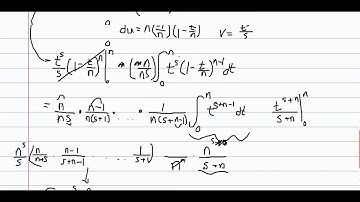 du = n(-1/n)(1-t/n) v = t^s/s
t^s/s (1-t/n)^n |_0^n + (n/ns) ∫_0^n t^s (1-t/n)^{n-1} dt
= n/ns · n-1/n(s+1) · ... · 1/n(s+n-1) ∫_0^n t^{s+n-1} dt t^{s+n}/s+n |_0^n
n^s/s (n/n+s · n-1/s+n-1 · ... · 1/s+1) n/s+n